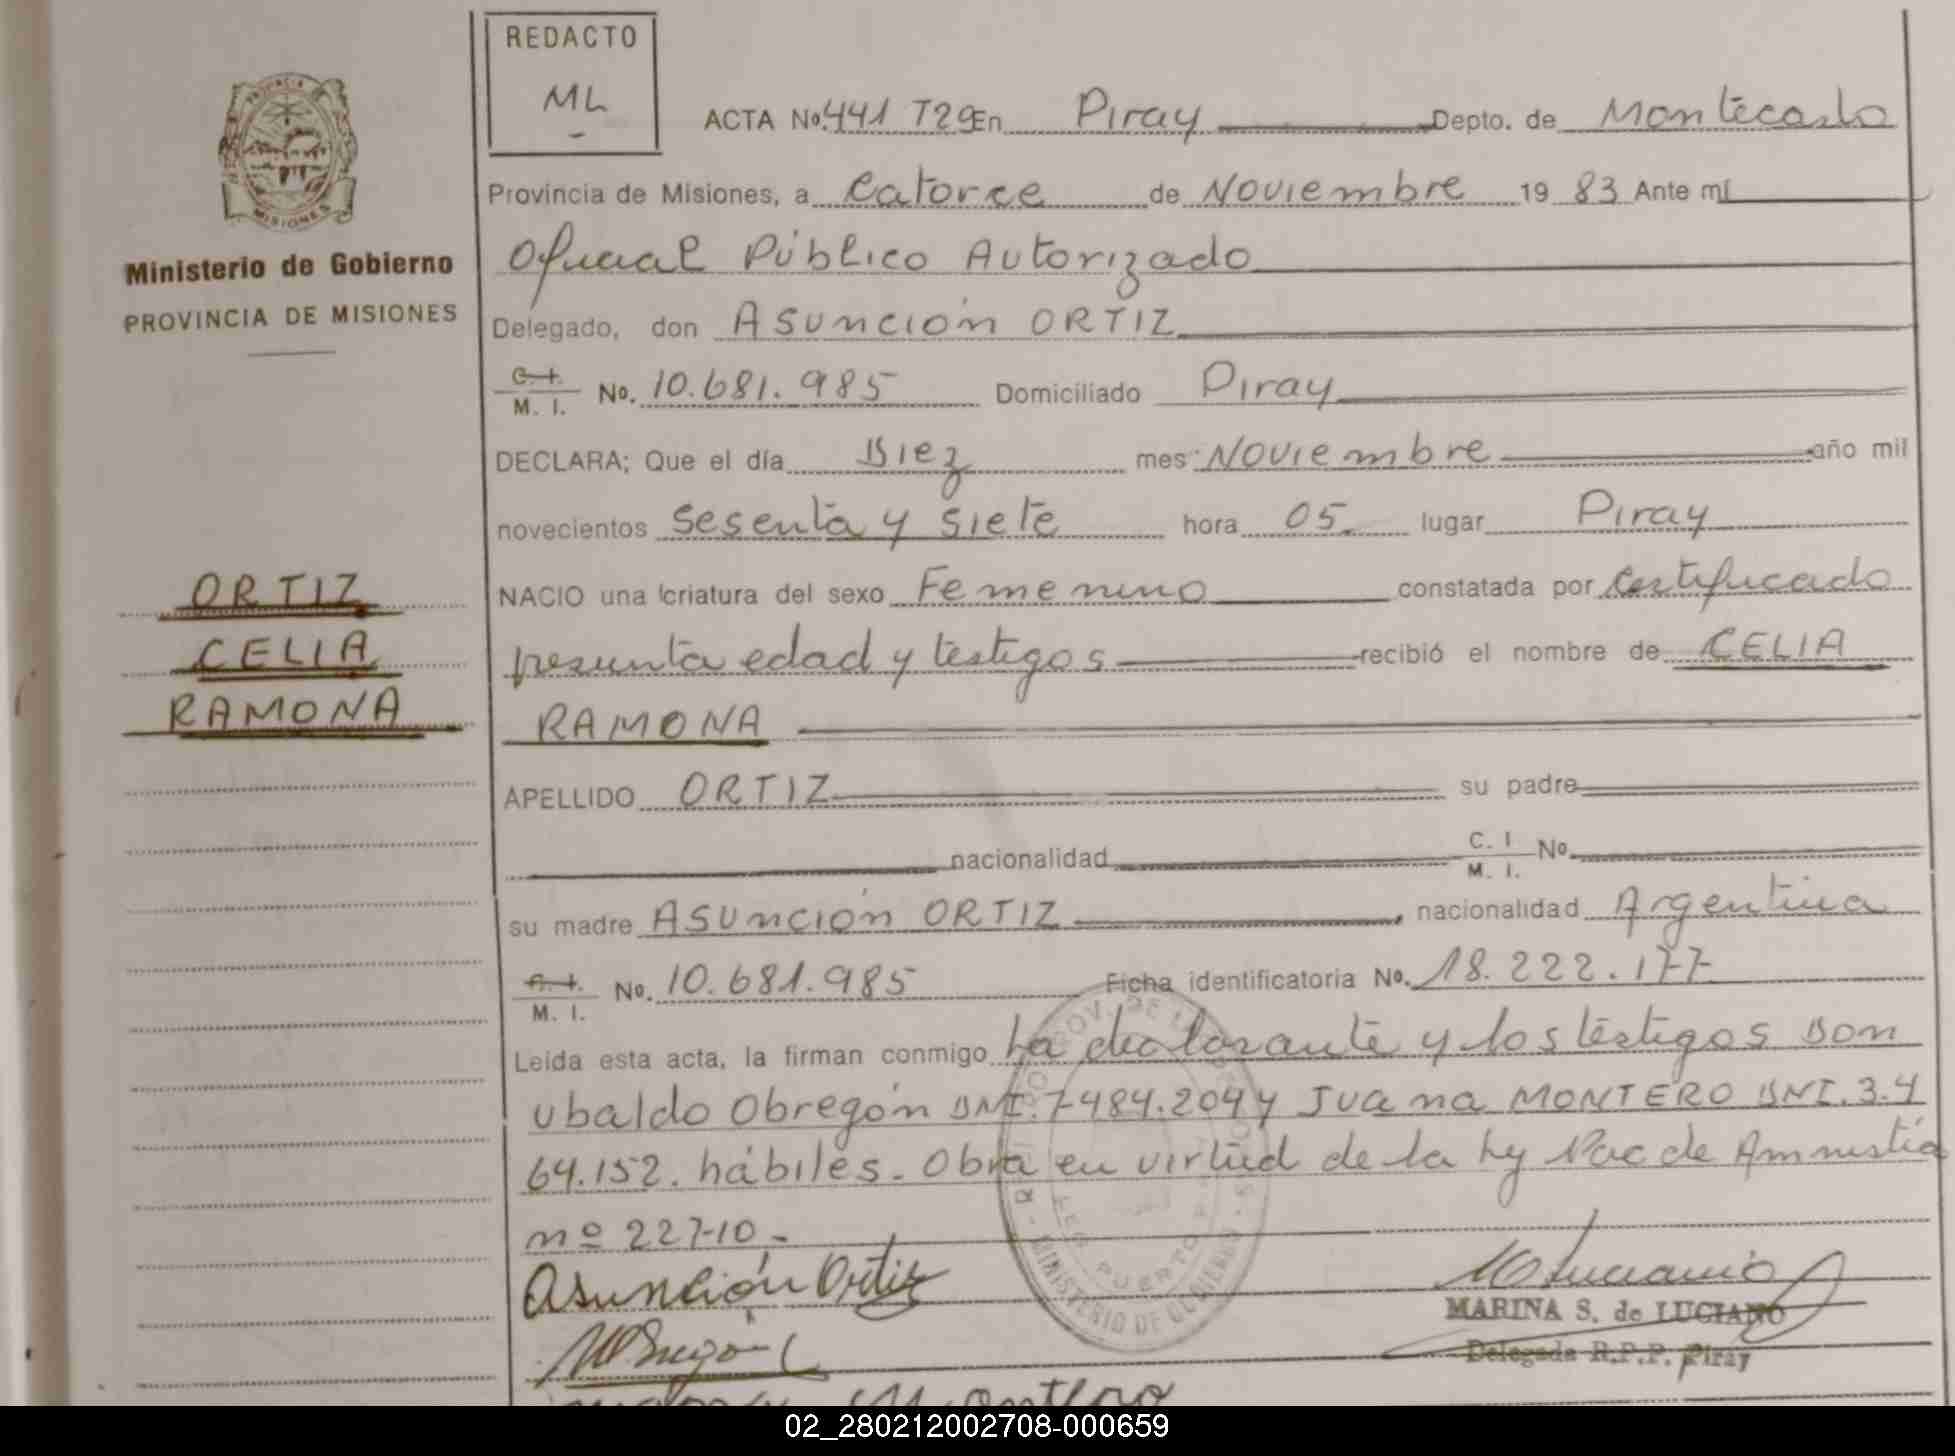 REDACTO
ML
PROVINCIA DE
MISIONES
Ministerio de Gobierno
PROVINCIA DE MISIONES
ORTIZ
CELIA
RAMONA
ACTA No. 441 T2º En Piray Depto. de Montecarlo
Provincia de Misiones, a Catorce de Noviembre 19 83 Ante mí
Oficial Público Autorizado
Delegado, don Asunción ORTIZ
C. I. M. I. No. 10.681.985 Domiciliado Piray
DECLARA; Que el día Diez mes Noviembre año mil
novecientos sesenta y siete hora 05 lugar Piray
NACIO una criatura del sexo Femenino constatada por Certificado
presunta edad y testigos recibió el nombre de CELIA
RAMONA
APELLIDO ORTIZ su padre
nacionalidad C. I M. I. No.
su madre Asunción ORTIZ , nacionalidad Argentina
M. I. No. 10.681.985 Ficha identificatoria No. 18.222.177
Leída esta acta, la firman conmigo La declarante y los testigos Don
Ubaldo Obregón DNI. 7484.204 y Juana MONTERO DNI. 3.4
64.152. hábiles. Obra en virtud de la Ly Nac de Amnistía
nº 22710.-
Asunción Ortiz
MARINA S. de LUCIANO
Delegada R.P.P. Piray
MINISTERIO DE GOBIERNO
PUERTO
Montero
02_280212002708-000659